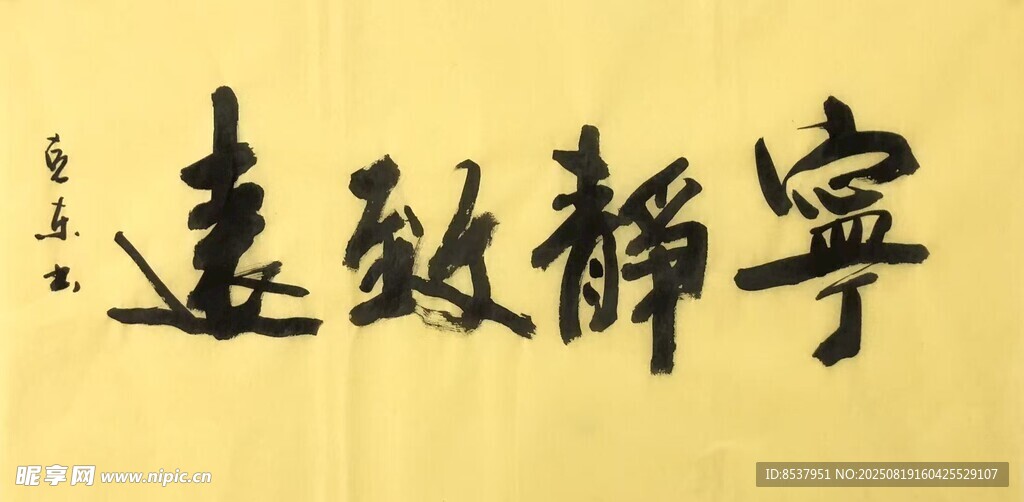 寧靜致遠
昵享网 www.nipic.cn
ID:8537951 NO:20250819160425529107